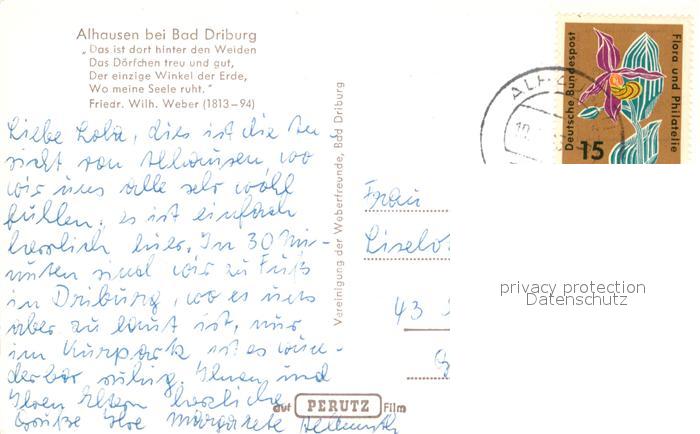 Alhausen bei Bad Driburg
„Das ist dort hinter den Weiden
Das Dörfchen treu und gut,
Der einzige Winkel der Erde,
Wo meine Seele ruht."
Friedr. Wilh. Weber (1813–94)
Liebe Lola, dies ist die An-
sicht von Alhausen, wo
wir uns alle sehr wohl
fühlen, es ist einfach
herrlich hier. In 30 Mi-
nuten sind wir zu Fuß
in Driburg, wo es uns
aber zu laut ist, nur
im Kurpark ist es wun-
derbar ruhig. Ihnen und
Ihren Eltern herzliche
Grüße Ihre Margarete
Vereinigung der Weberfreunde, Bad Driburg
auf PERUTZ Film
Frau
Liselo
43
ALH
Deutsche Bundespost
15
Flora und Philatelie
privacy protection
Datenschutz